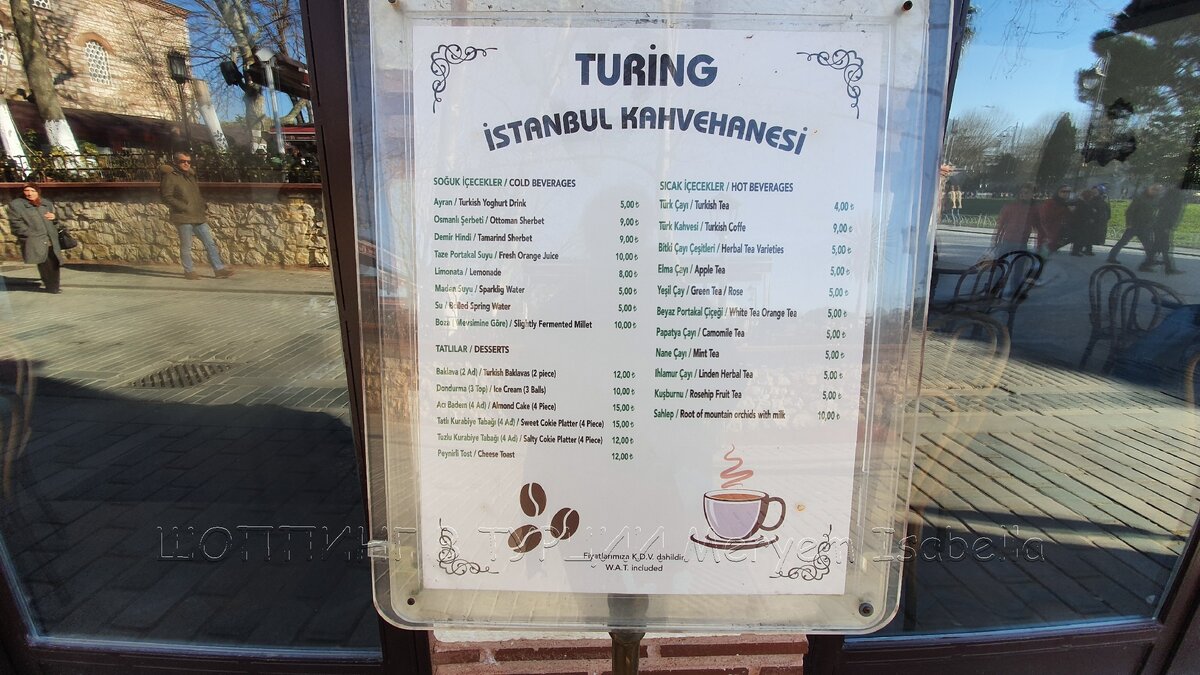 TURİNG
İSTANBUL KAHVEHANESİ
SOĞUK İÇECEKLER / COLD BEVERAGES
Ayran / Turkish Yoghurt Drink 5,00 ₺
Osmanlı Şerbeti / Ottoman Sherbet 9,00 ₺
Demir Hindi / Tamarind Sherbet 9,00 ₺
Taze Portakal Suyu / Fresh Orange Juice 10,00 ₺
Limonata / Lemonade 8,00 ₺
Maden Suyu / Sparklig Water 5,00 ₺
Su / Boiled Spring Water 5,00 ₺
Boza (Mevsimine Göre) / Slightly Fermented Millet 10,00 ₺
TATLILAR / DESSERTS
Baklava (2 Ad) / Turkish Baklavas (2 piece) 12,00 ₺
Dondurma (3 Top) / Ice Cream (3 Balls) 10,00 ₺
Acı Badem (4 Ad) / Almond Cake (4 Piece) 15,00 ₺
Tatlı Kurabiye Tabağı (4 Ad) / Sweet Cokie Platter (4 Piece) 15,00 ₺
Tuzlu Kurabiye Tabağı (4 Ad) / Salty Cokie Platter (4 Piece) 12,00 ₺
Peynirli Tost / Cheese Toast 12,00 ₺
SICAK İÇECEKLER / HOT BEVERAGES
Türk Çayı / Turkish Tea 4,00 ₺
Türk Kahvesi / Turkish Coffe 9,00 ₺
Bitki Çayı Çeşitleri / Herbal Tea Varieties 5,00 ₺
Elma Çayı / Apple Tea 5,00 ₺
Yeşil Çay / Green Tea / Rose 5,00 ₺
Beyaz Portakal Çiçeği / White Tea Orange Tea 5,00 ₺
Papatya Çayı / Camomile Tea 5,00 ₺
Nane Çayı / Mint Tea 5,00 ₺
Ihlamur Çayı / Linden Herbal Tea 5,00 ₺
Kuşburnu / Rosehip Fruit Tea 5,00 ₺
Sahlep / Root of mountain orchids with milk 10,00 ₺
Fiyatlarımıza K.D.V. dahildir.
W.A.T. included
ШОППИНГ В ТУРЦИИ Meryem Isabella